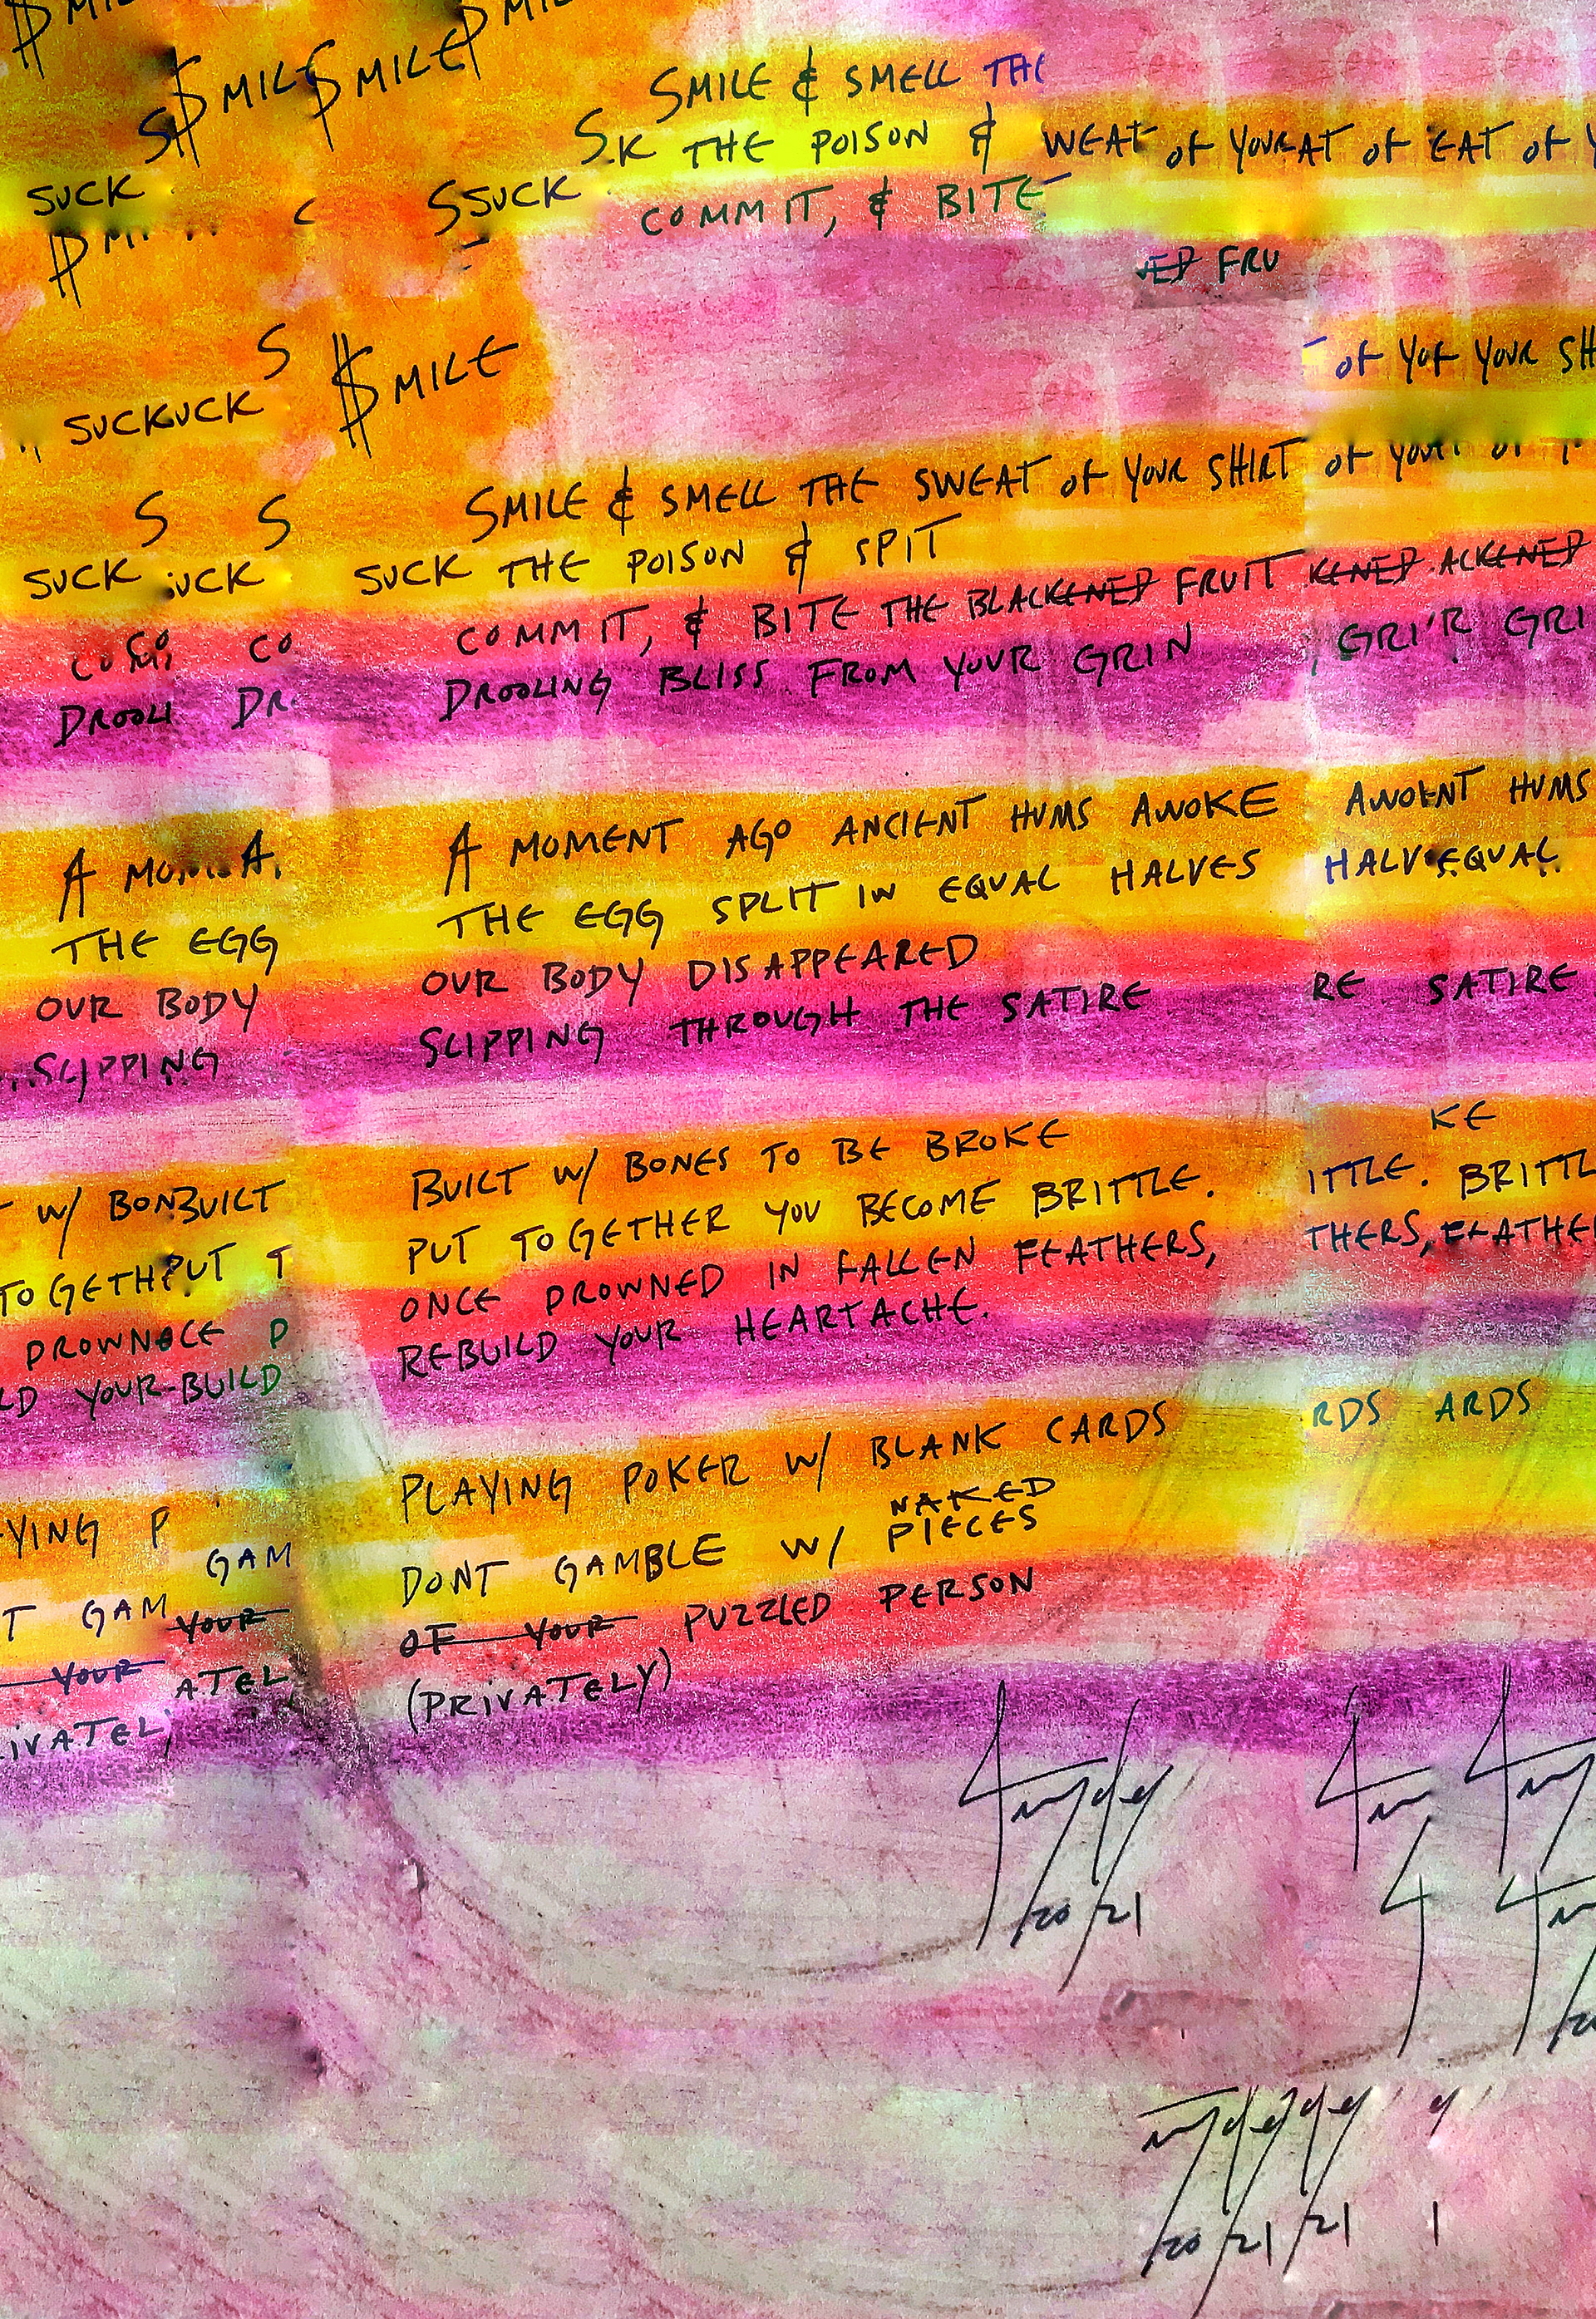 $MILE $MILE
SMILE & SMELL THE
SUCK SSUCK S.K THE POISON & WEAT OF YOUR AT OF EAT OF
COMMIT, & BITE
FRU
SUCKUCK $MILE
OF YOF YOUR SH
S S SMILE & SMELL THE SWEAT OF YOUR SHIRT OF YOUR
SUCK UCK SUCK THE POISON & SPIT
CO COMMIT, & BITE THE BLACKENED FRUIT KENED ACKENED
DROOLI DR. DROOLING BLISS FROM YOUR GRIN GRI'R GRI
A MOM A. A MOMENT AGO ANCIENT HUMS AWOKE AWOKNT HUMS
THE EGG THE EGG SPLIT IN EQUAL HALVES HALV EQUAL
OUR BODY OUR BODY DISAPPEARED
SLIPPING SLIPPING THROUGH THE SATIRE RE SATIRE
W/ BONBUILT BUILT W/ BONES TO BE BROKE KE
TOGETHPUT T PUT TOGETHER YOU BECOME BRITTLE. ITTLE. BRITTL
DROWNOCE D ONCE DROWNED IN FALLEN FEATHERS, THERS, EATHE
LD YOUR-BUILD REBUILD YOUR HEARTACHE.
YING P PLAYING POKER W/ BLANK CARDS RDS ARDS
NAKED
T GAM GAM DONT GAMBLE W/ PIECES
YOUR YOUR OF YOUR PUZZLED PERSON
IVATEL ATEL (PRIVATELY)
20 21
20 21 21 1